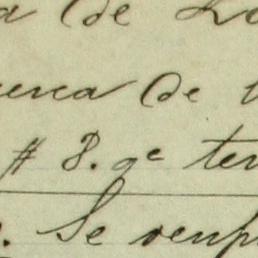 a de Lo
erca de l
# 8. qe ten
Se ocup